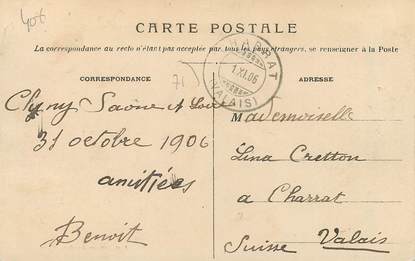 406
CARTE POSTALE
La correspondance au recto n'étant pas acceptée par tous les pays étrangers, se renseigner à la Poste
CORRESPONDANCE
ADRESSE
71
CHARRAT
1.XI.06
(VALAIS)
Cluny Saône et Loire
31 octobre 1906
amitiées
Benoit
Mademoiselle
Lina Cretton
a Charrat
Suisse Valais